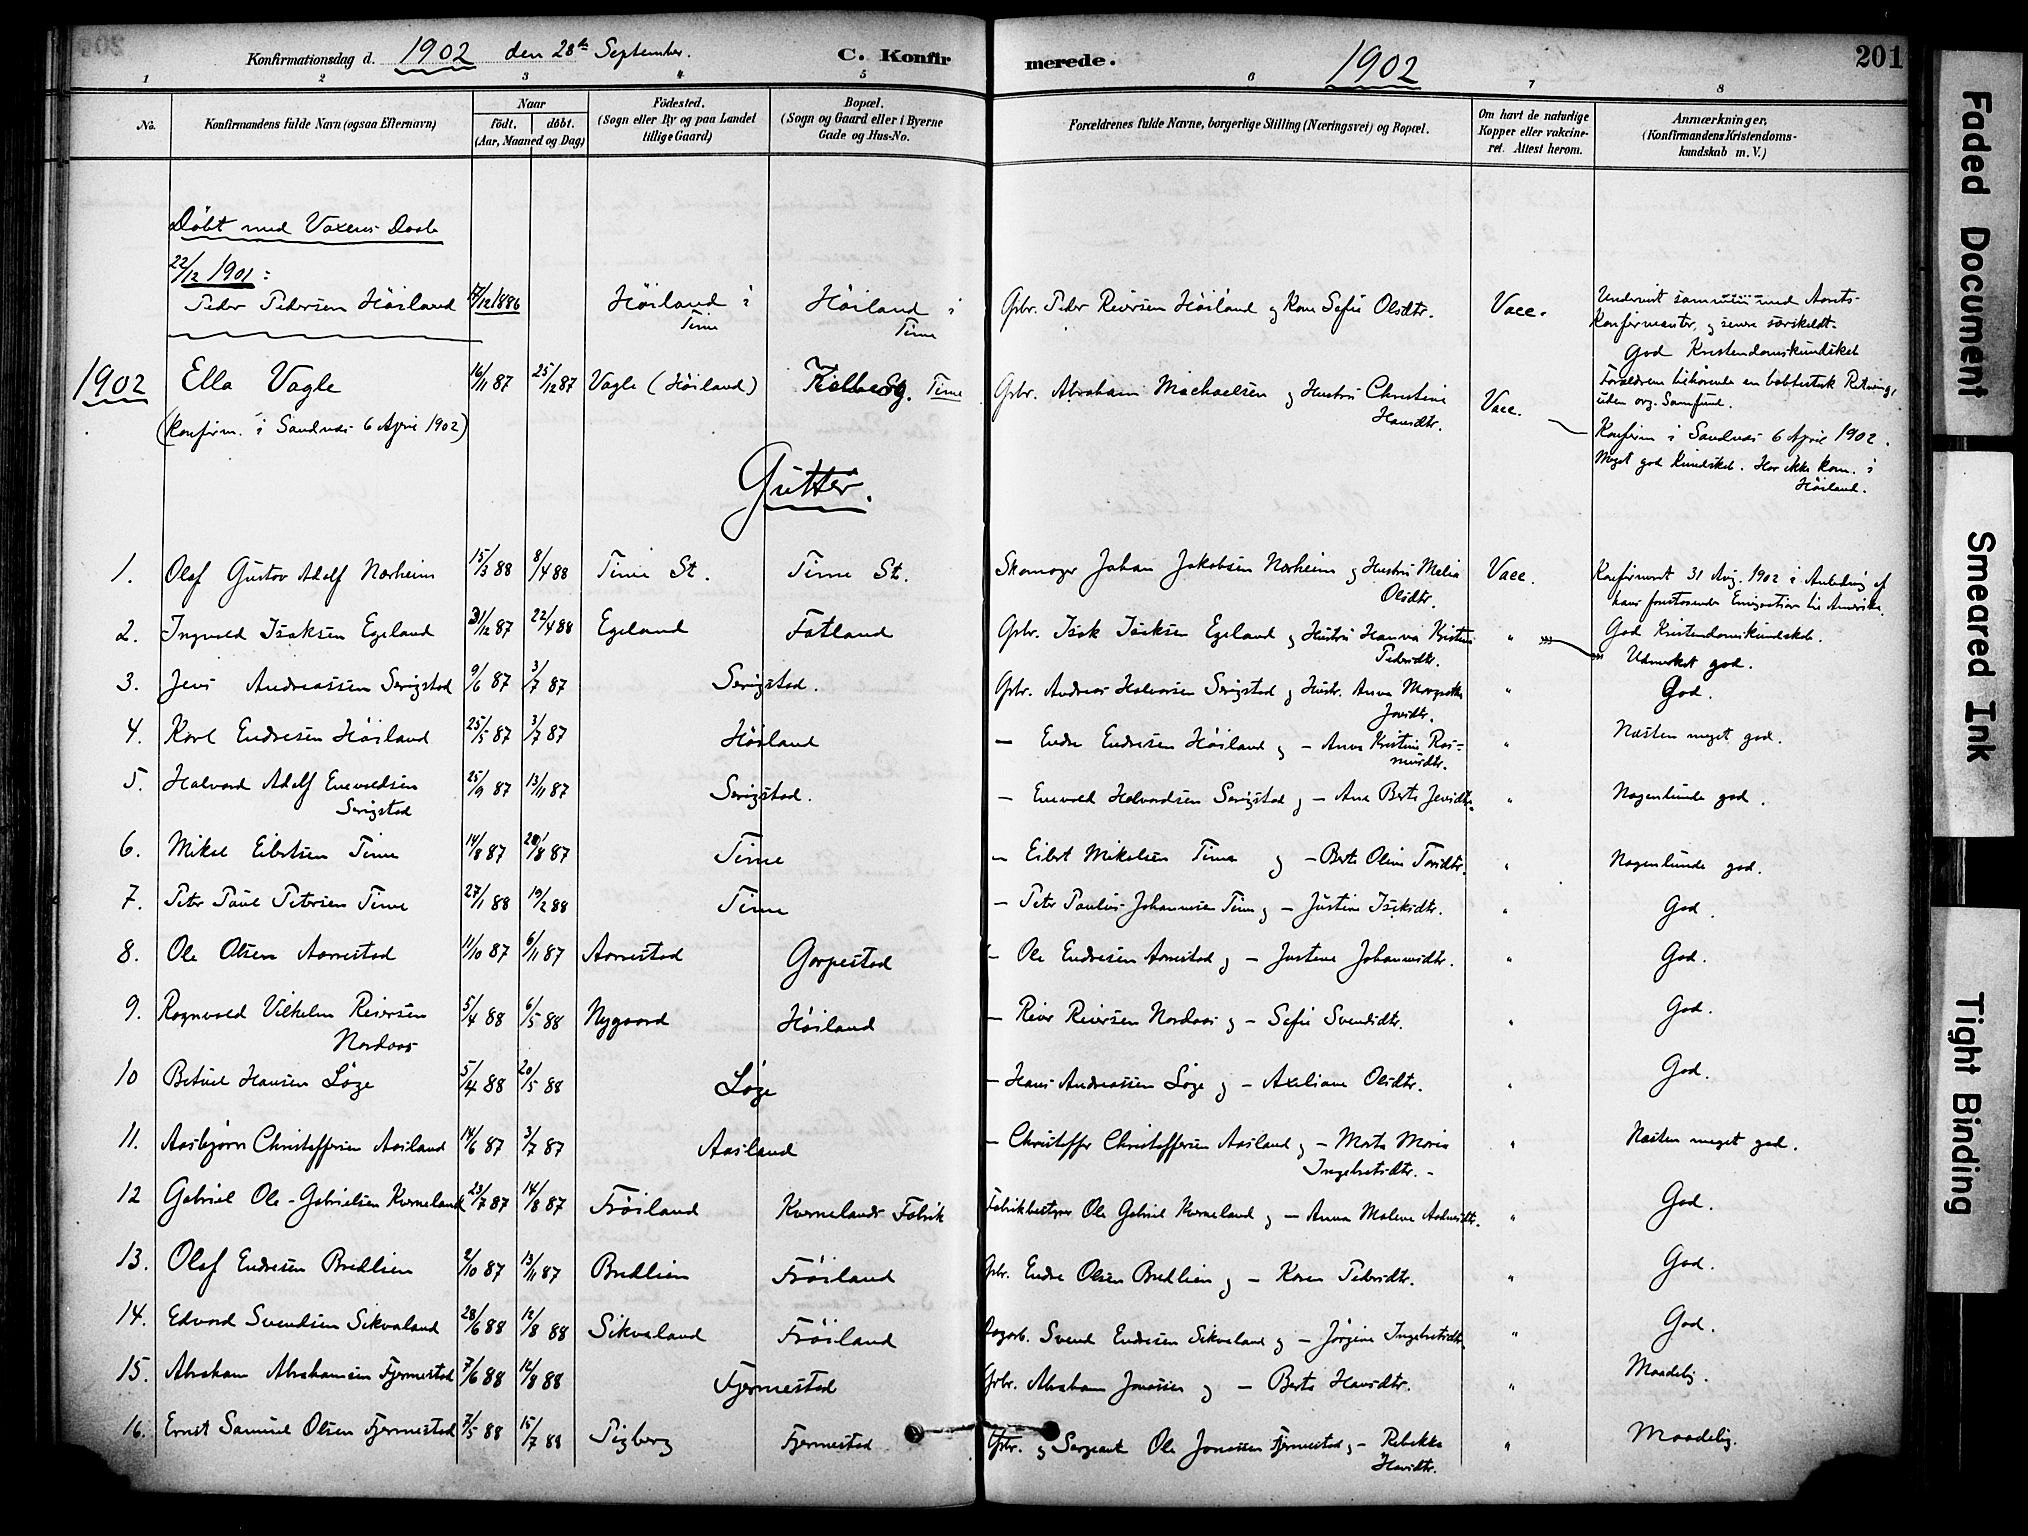 Konfirmationsdag d. 1902 den 28de September. C. Konfirmerede. 1902 201
1 2 3 4 5 6 7 8
No. Konfirmandens fulde Navn (ogsaa Efternavn) Naar födt. döbt. (Aar, Maaned og Dag) Födested. (Sogn eller By og paa Landet tillige Gaard) Bopæl. (Sogn og Gaard eller i Byerne Gade og Hus-No. Forældrenes fulde Navne, borgerlige Stilling (Næringsvei) og Bopæl. Om havt de naturlige Kopper eller vakcineret. Attest herom. Anmærkninger. (Konfirmandens Kristendomskundskab m. V.)
Döbt med Voxens Daab
22/12 1901:
Peder Pedersen Höiland 4/12 1886 Höiland i Time Höiland i Time Gbr. Peder Reiersen Höiland og Kone Sofie Olsdtr. Vacc. Undervist sammen med Aarets Konfirmanter, og senere særskildt. God Kristendomskundskab Forældrene tilhörende en babtistisk Retning, uden org. Samfund.
1902 Ella Vagle 16/11 87 25/12 87 Vagle (Höiland) Kalberg. Time Gbr. Abraham Machaelsen og Hustru Christine Hansdtr. Vacc. Konfirm i Sandnæs 6 April 1902. Meget god Kundskab. Har ikke kom. i Höiland.
(Konfirm. i Sandnæs 6 April 1902)
Gutter.
1. Olaf Gustav Adolf Norheim 15/3 88 8/4 88 Time St. Time St. Skomager Johan Jakobsen Norheim og Hustru Malia Olsdtr. Vacc. Konfirmeret 31 Aug. 1902 i Anledning af hans forestaaende Emigration til Amerika. God Kristendomskundskab.
2. Ingvald Isaksen Egeland 31/12 87 22/4 88 Egeland Fotland Gbr. Isak Isaksen Egeland og Hustru Hanna Kristine Pedersdtr. " Udmerket god.
3. Jens Andreassen Serigstad 9/6 87 3/7 87 Serigstad. Gbr. Andreas Halvorsen Serigstad og Hustr. Anna Margrethe Jonsdtr. " God.
4. Karl Endresen Höiland 25/5 87 3/7 87 Höiland — Endre Endresen Höiland og — Anna Kristine Rasmusdtr. " Næsten meget god.
5. Halvard Adolf Enevoldsen Serigstad 25/9 87 13/11 87 Serigstad. — Enevold Halvordsen Serigstad og — Ane Berte Jensdtr. " Nogenlunde god.
6. Mikal Eilertsen Time 14/8 87 28/8 87 Time — Eilert Mikalsen Time og — Berte Oline Torsdtr. " Nogenlunde god.
7. Peter Paul Petersen Time 27/1 88 19/2 88 Time — Peter Paulus Johannesen Time og — Justine Isaksdtr. " God.
8. Ole Olsen Aarrestad 11/10 87 6/11 87 Aarrestad Garpestad — Ole Endresen Aarrestad og — Justine Johannesdtr. " God.
9. Ragnvald Vilhelm Reiersen Nordaas 5/4 88 6/5 88 Nygaard Höiland — Reier Reiersen Nordaas og — Sofie Svendsdtr. " God.
10 Betuel Hansen Löge 5/4 88 20/5 88 Löge — Hans Andreassen Löge og — Axeliane Olsdtr. " God.
11. Aasbjörn Christoffersen Aasland 14/6 87 3/7 87 Aasland — Christoffer Christoffersen Aasland og — Marta Maria Ingebretsdtr. — " Næsten meget god.
12 Gabriel Ole-Gabrielsen Kverneland 23/7 87 14/8 87 Fröiland Kvernelands Fabrik Fabrikbestyrer Ole Gabriel Kverneland og — Anna Malene Aadnesdtr. " God.
13. Olaf Endresen Bredlien 2/10 87 13/11 87 Bredlien Fröiland Gbr. Endre Olsen Bredlien og — Karen Pedersdtr. " God.
14. Edvard Svendsen Sikvaland 28/6 88 12/8 88 Sikvaland Fröiland Dagarb. Svend Endresen Sikvaland og — Jörgine Ingebretsdtr. " God.
15. Abraham Abrahamsen Fjermestad 7/6 88 12/8 88 Fjermestad Gbr. Abraham Jonassen og — Berte Hansdtr. " Maadelig.
16. Ernst Samuel Olsen Fjermestad 7/5 88 15/7 88 Tigberg Fjermestad Gbr. og Sergeant Ole Jonassen Fjermestad og — Rebekka Hansdtr. " Maadelig.
Faded Document
Smeared Ink
Tight Binding